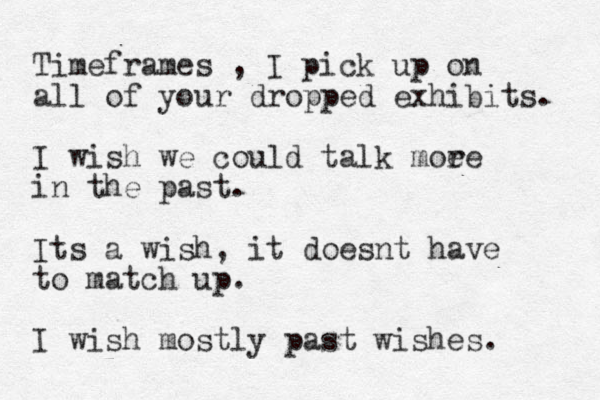 Timeframes , I pick up on
all of your dropped exhibits.
I wish we could talk more
in the past.
Its a wish, it doesnt have
to match up.
I wish mostly past wishes.